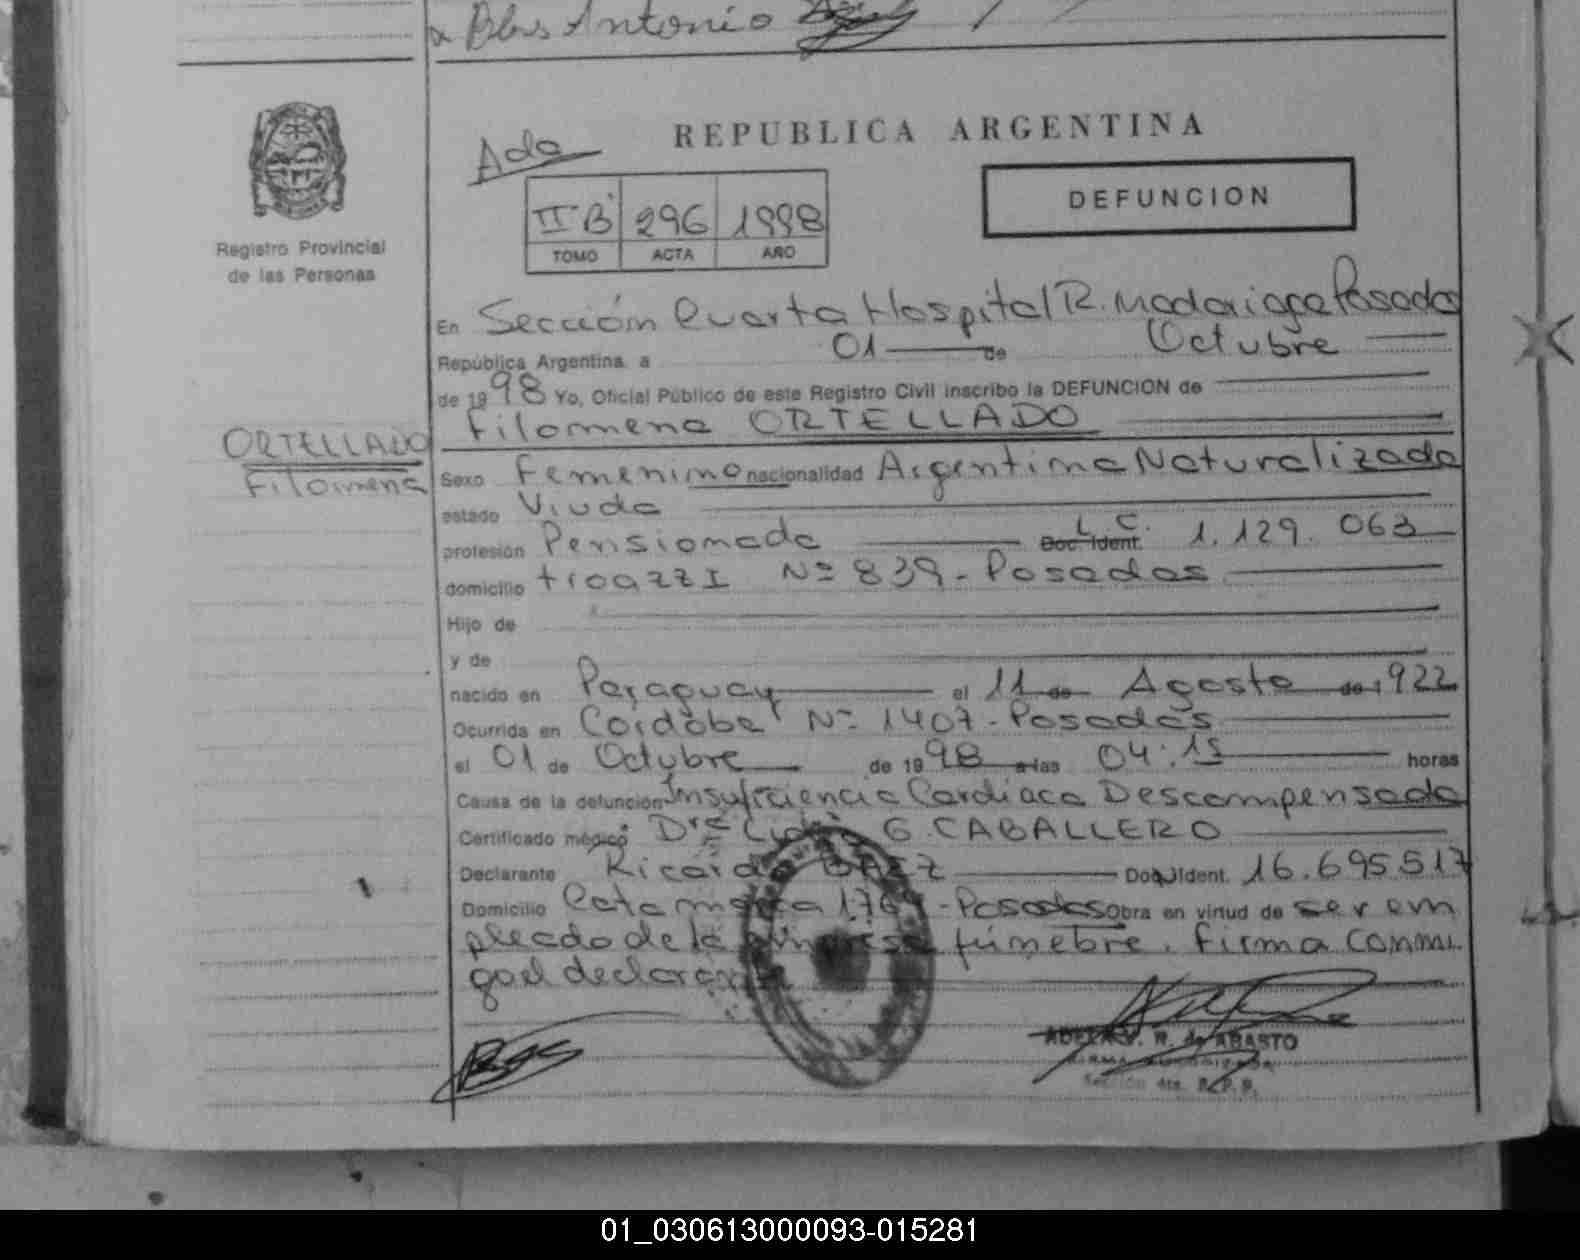 Blas Antonio
REPUBLICA ARGENTINA
Ada
DEFUNCION
II "B" 296 1998
TOMO ACTA AÑO
Registro Provincial
de las Personas
En Sección Cuarta Hospital R. Madariaga Posadas
República Argentina, a 01 de Octubre
de 1998 Yo, Oficial Público de este Registro Civil inscribo la DEFUNCION de
Filomena ORTELLADO
ORTELLADO
Filomena
Sexo Femenino nacionalidad Argentina Naturalizada
estado Viuda
profesión Pensionada Doc. Ident. L.C. 1.129.063
domicilio Nº 839 - Posadas
Hijo de
y de
nacido en Paraguay el 11 de Agosto de 1922
Ocurrida en Córdoba Nº 1407 - Posadas
el 01 de Octubre de 1998 a las 04:15 horas
Causa de la defunción Insuficiencia Cardíaca Descompensada
Certificado médico Dra Lidia G. CABALLERO
Declarante Ricardo BAEZ Doc. Ident. 16.695.517
Domicilio Catamarca - Posadas Obra en virtud de ser em
pleado de la empresa fúnebre. Firma conmi-
go el declarante
ADELA V. R. de ABASTO
FIRMA AUTORIZADA
Sección 4ta. R. P. P.
01_030613000093-015281